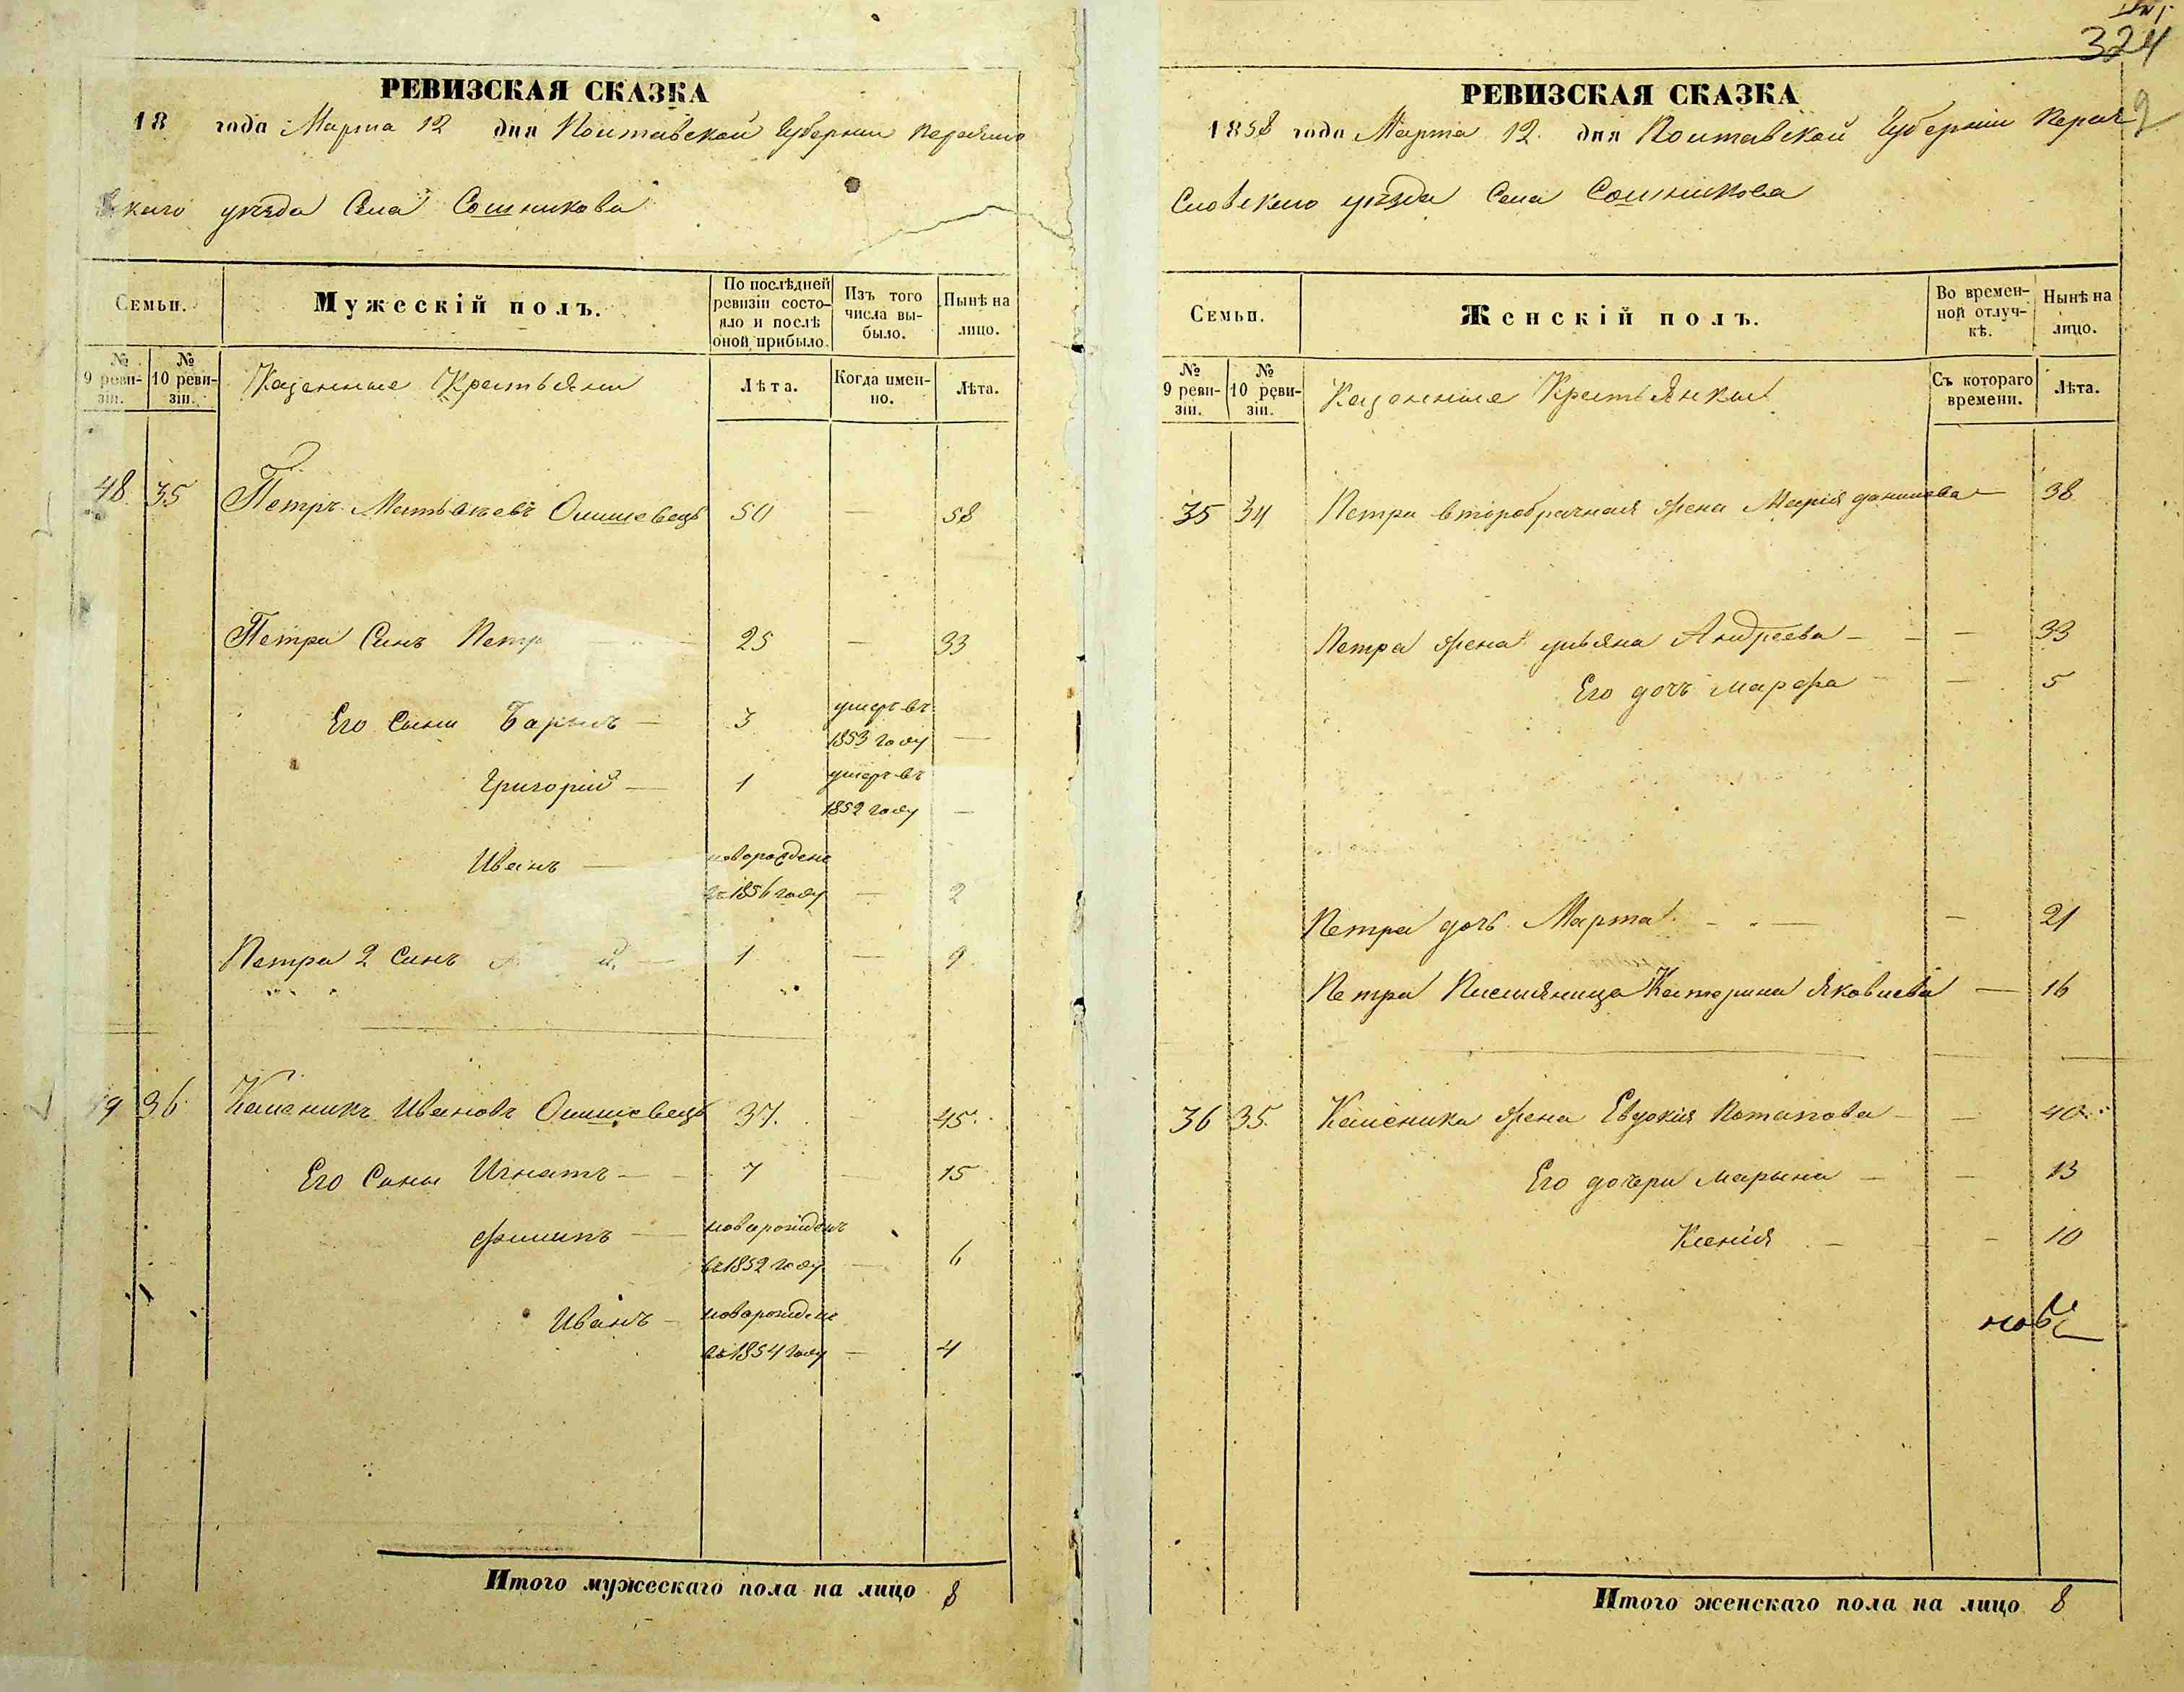 РЕВИЗСКАЯ СКАЗКА
18 года Марта 12 дня Полтавской Губернии Переясло
вскаго уезда Села Сошникова
Семьи.
Мужескій полъ.
По послѣдней ревизіи состояло и послѣ оной прибыло.
Изъ того числа выбыло.
Нынѣ на лицо.
№ 9 ревизіи.
№ 10 ревизіи.
Казенные Крестьяни
Лѣта.
Когда именно.
Лѣта.
48 35 Петръ Матвѣевъ Олишевець 50 — 58
Петра Синъ Петр 25 — 33
Его Сыни — 3 умеръ въ 1853 году —
Григорій — 1 умеръ въ 1852 году —
Иванъ — новорожденъ въ 1856 году — 2
Петра 2 Синъ — 1 — 9
9 36 Каленикъ Ивановъ Олишевець 37. 45.
Его Сыны Игнатъ — 7 — 15
Филипъ — новорожденъ въ 1852 году — 6
Иванъ — новорожденъ въ 1854 году — 4
Итого мужескаго пола на лицо 8
324
2
РЕВИЗСКАЯ СКАЗКА
1858 года Марта 12 дня Полтавской Губерніи Перея
словского уезда Села Сошникова
Семьи.
Женскій полъ.
Во временной отлучкѣ.
Нынѣ на лицо.
№ 9 ревизіи.
№ 10 ревизіи.
Казенные Крестьянки
Съ котораго времени.
Лѣта.
35 34 Петра второбрачная жена Марія данилова — 38
Петра жена ульяна Андреева — — — 33
Его дочь марфа — — 5
Петра дочь Марта — — — 21
Петра Племяница Катерина Яковлева — 16
36 35 Каленика жена Евдокия Потапова — — 40
Его дочери марына — — 13
Ксенія — — — 10
Итого женскаго пола на лицо 8